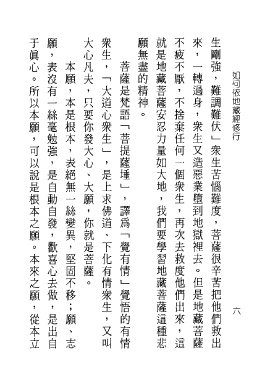 如何依地藏經修行
六
生剛強，難調難伏」衆生苦惱難度，菩薩很辛苦把他們救出
來，一轉過身，衆生又造惡業墮到地獄裡去。但是地藏菩薩
不疲不厭，不捨棄任何一個衆生，再次去救度他們出來，這
就是地藏菩薩安忍力量如大地，我們要學習地藏菩薩這種悲
願無盡的精神。
菩薩是梵語「菩提薩埵」，譯爲「覺有情」覺悟的有情
衆生，「大道心衆生」，是上求佛道、下化有情衆生，又叫
大心凡夫，只要你發大心、大願，你就是菩薩。
本願，本是根本，表絕無一絲變異，堅固不移；願、志
願，表沒有一絲毫勉強，是自動自發，歡喜心去做，是出自
于眞心。所以本願，可以說是根本之願。本來之願，從本立